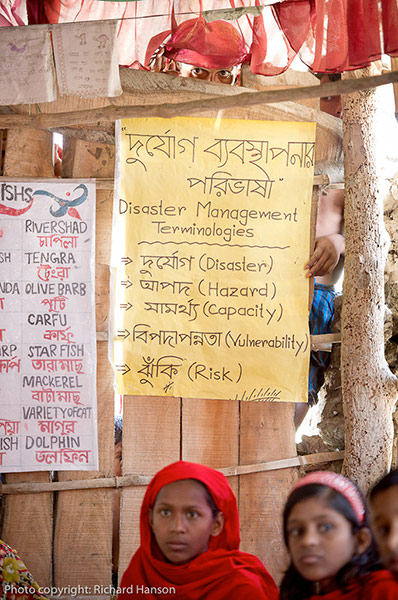 "দুর্যোগ ব্যবস্থাপনার
পরিভাষা"
Disaster Management
Terminologies
⇒ দুর্যোগ (Disaster)
⇒ আপদ (Hazard)
⇒ সামর্থ্য (Capacity)
⇒ বিপদাপন্নতা (Vulnerability)
⇒ ঝুঁকি (Risk)
RIVERSHAD
চাপিলা
TENGRA
টেংরা
OLIVE BARB
পুটি
CARFU
কারফু
STAR FISH
তারা মাছ
MACKEREL
বাটা মাছ
VARIETY OF CAT
মাগুর
DOLPHIN
Photo copyright: Richard Hanson